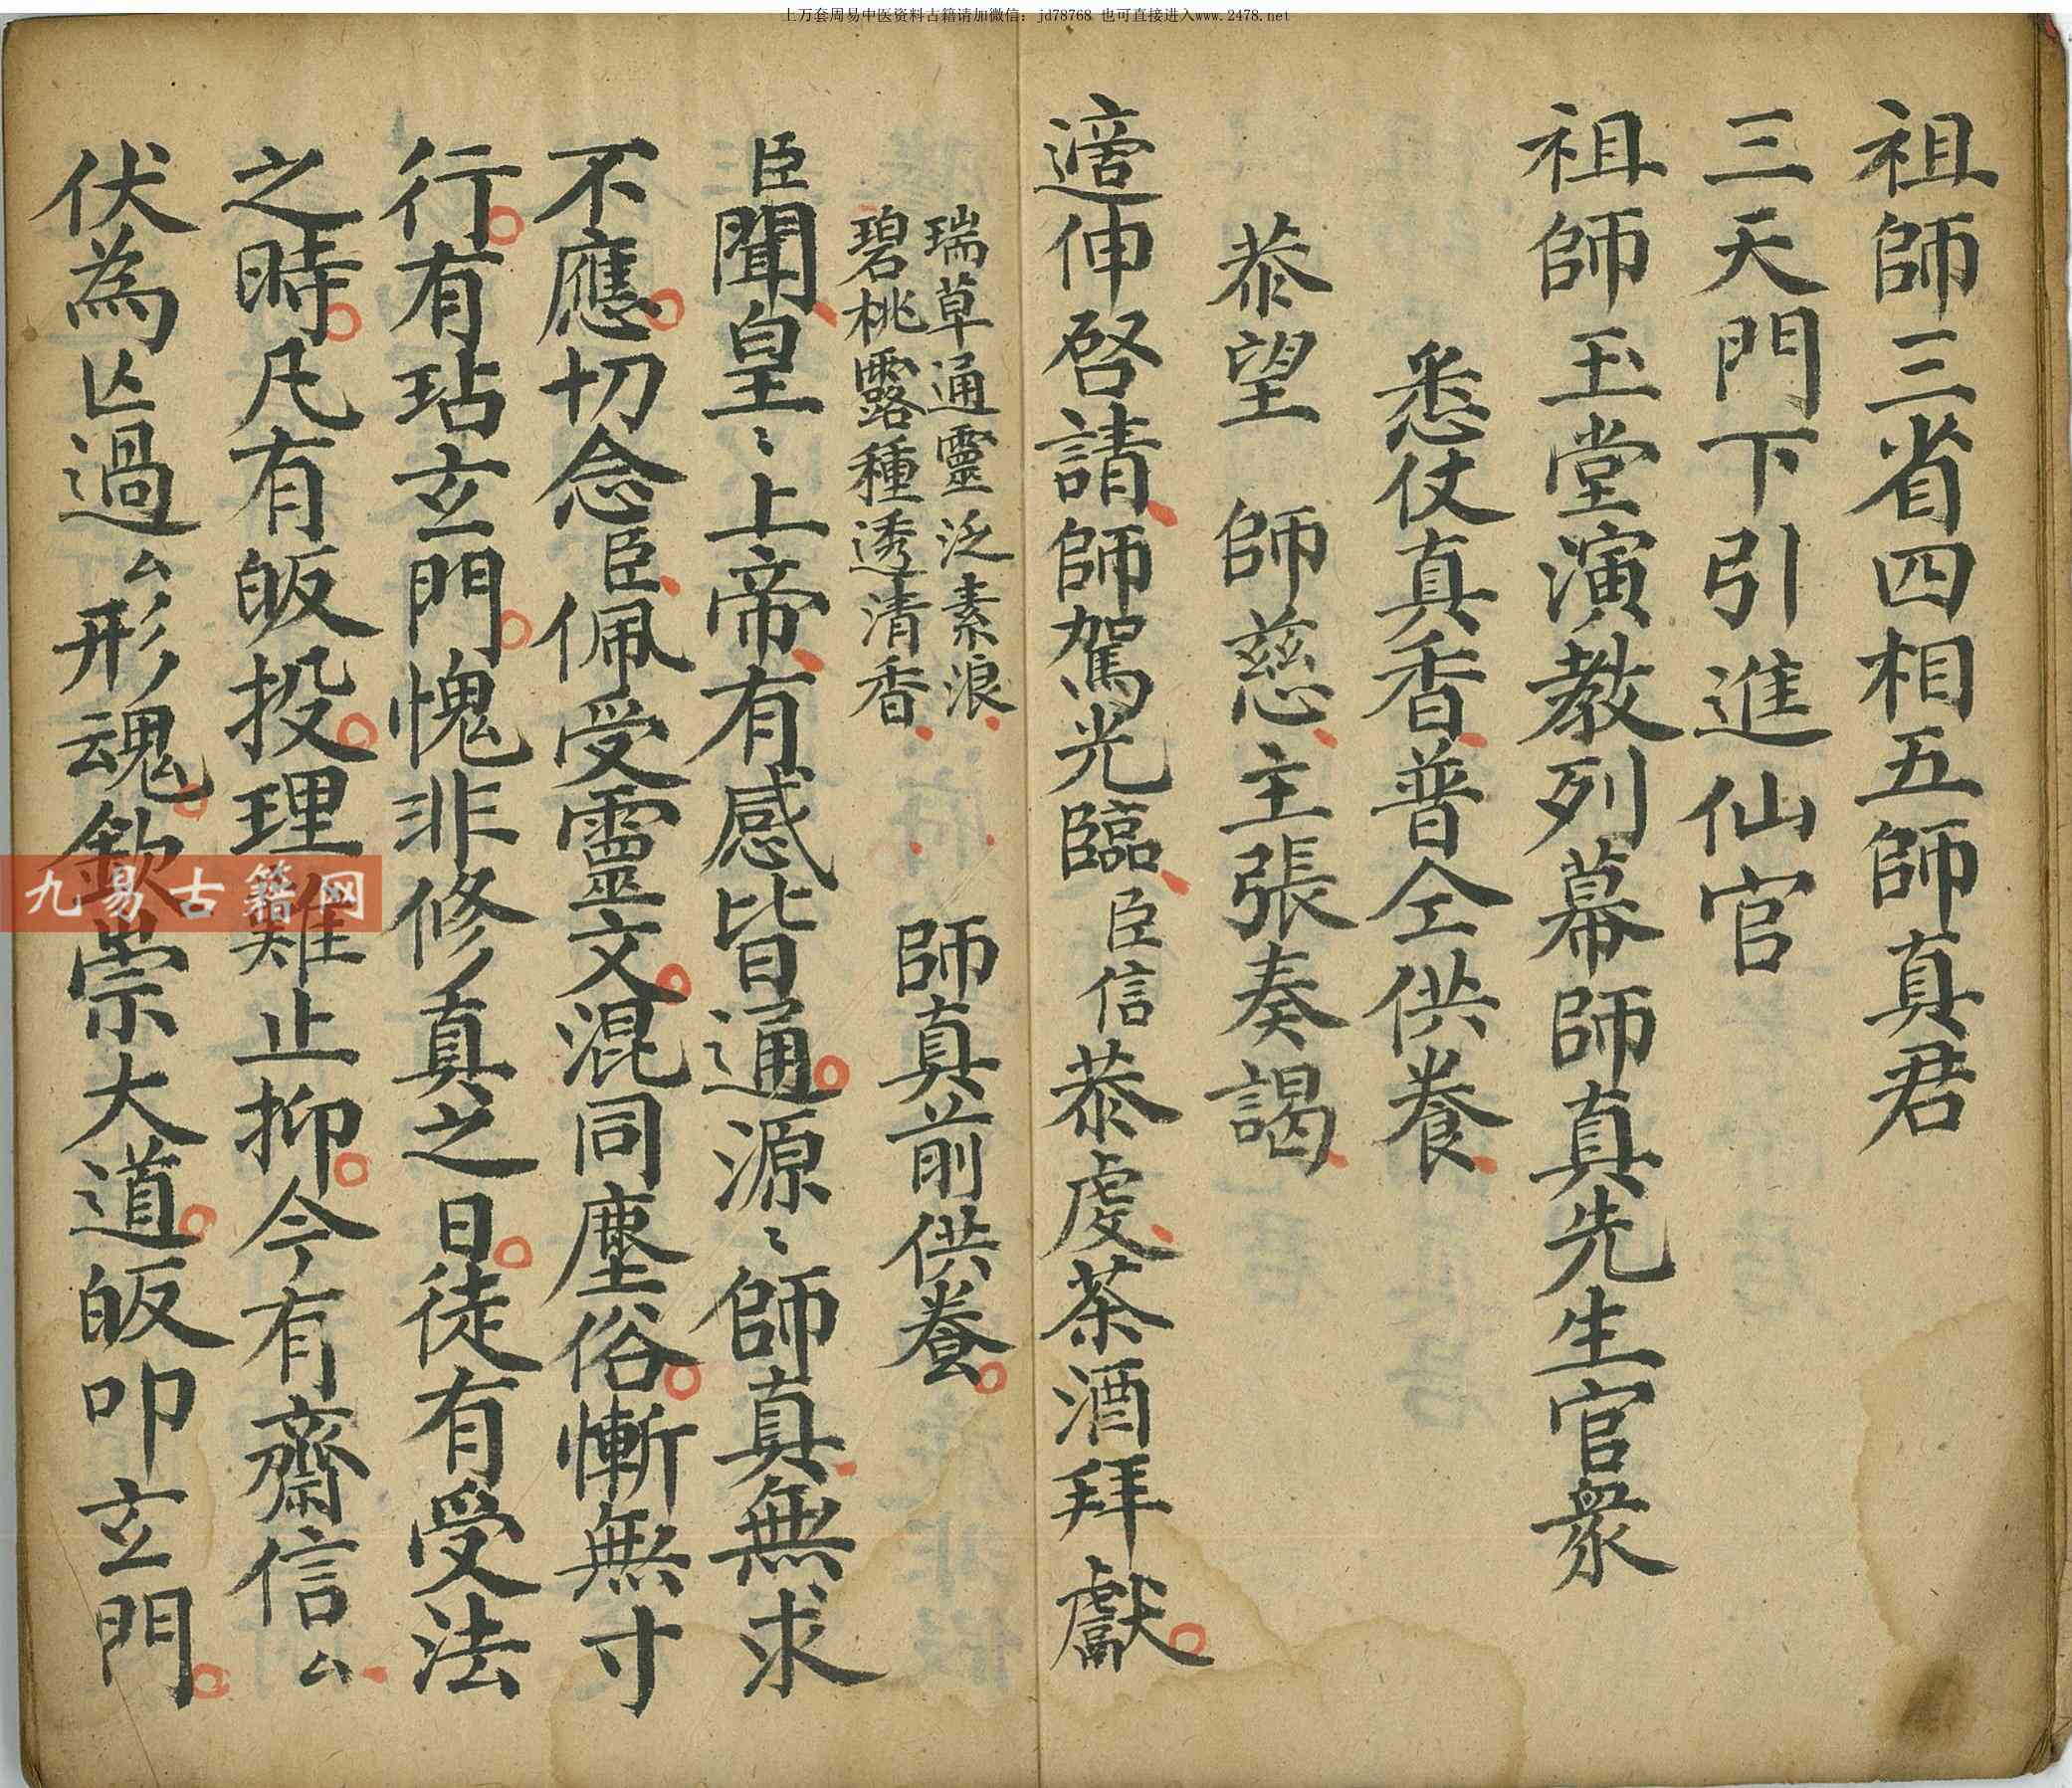 上万套周易中医资料古籍请加微信：jd78768 也可直接进入www.2478.net
祖師三省四相五師真君
三天門下引進仙官
祖師玉堂演教列幕師真先生官衆
悉仗真香普仝供養
恭望 師慈主張奏謁
適伸啓請師駕光臨臣信恭虔茶酒拜獻
瑞草通靈泛素浪
碧桃露種透清香
師真前供養
臣聞皇〻上帝有感皆通源〻師真無求
不應切念臣佩受靈文混同塵俗慚無寸
行有玷玄門愧非修真之日徒有受法
之時凡有皈投理難止抑今有齋信厶
伏為亾過厶形魂欽崇大道皈叩玄門
九易古籍网